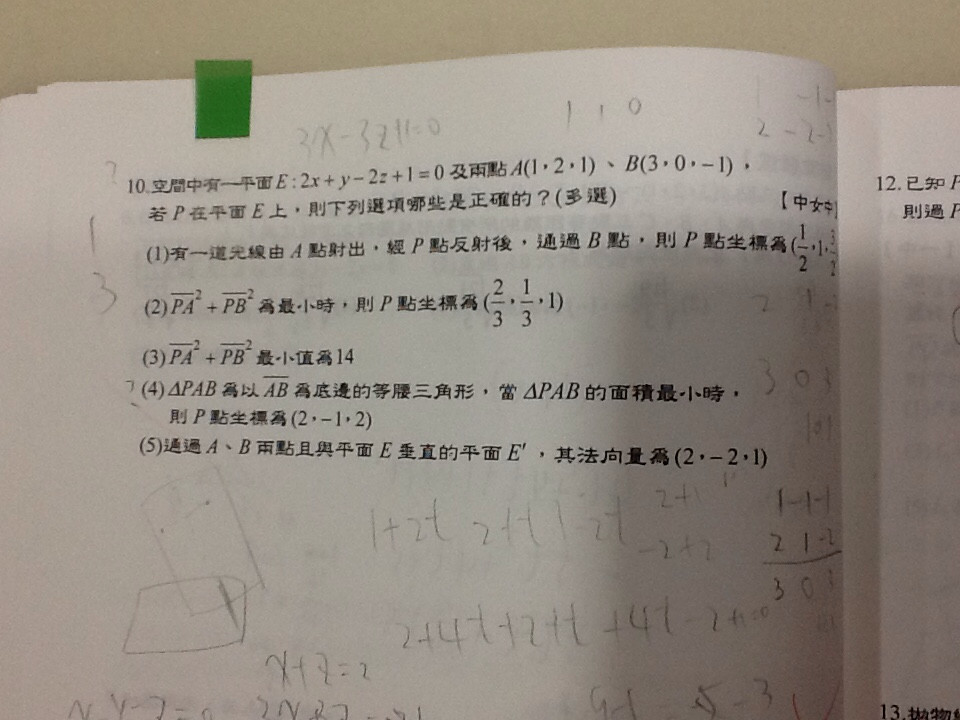 3x-3z+1=0
1 1 0
10.空間中有一平面E:2x+y-2z+1=0及兩點A(1,2,1)、B(3,0,-1),
若P在平面E上,則下列選項哪些是正確的?(多選)
【中女中
(1)有一道光線由A點射出,經P點反射後,通過B點,則P點坐標為(1/2,1,3/2
(2)PA²+PB²為最小時,則P點坐標為(2/3,1/3,1)
(3)PA²+PB²最小值為14
(4)ΔPAB為以AB為底邊的等腰三角形,當ΔPAB的面積最小時,
則P點坐標為(2,-1,2)
(5)通過A、B兩點且與平面E垂直的平面E′,其法向量為(2,-2,1)
1
3
3 0 3
1+2t 2+t 1-2t
1 -1 -1
2 1 -2
3 0 3
2+4t+2+t+4t-2+1=0
x+z=2
12.已知
則過
13.拋物